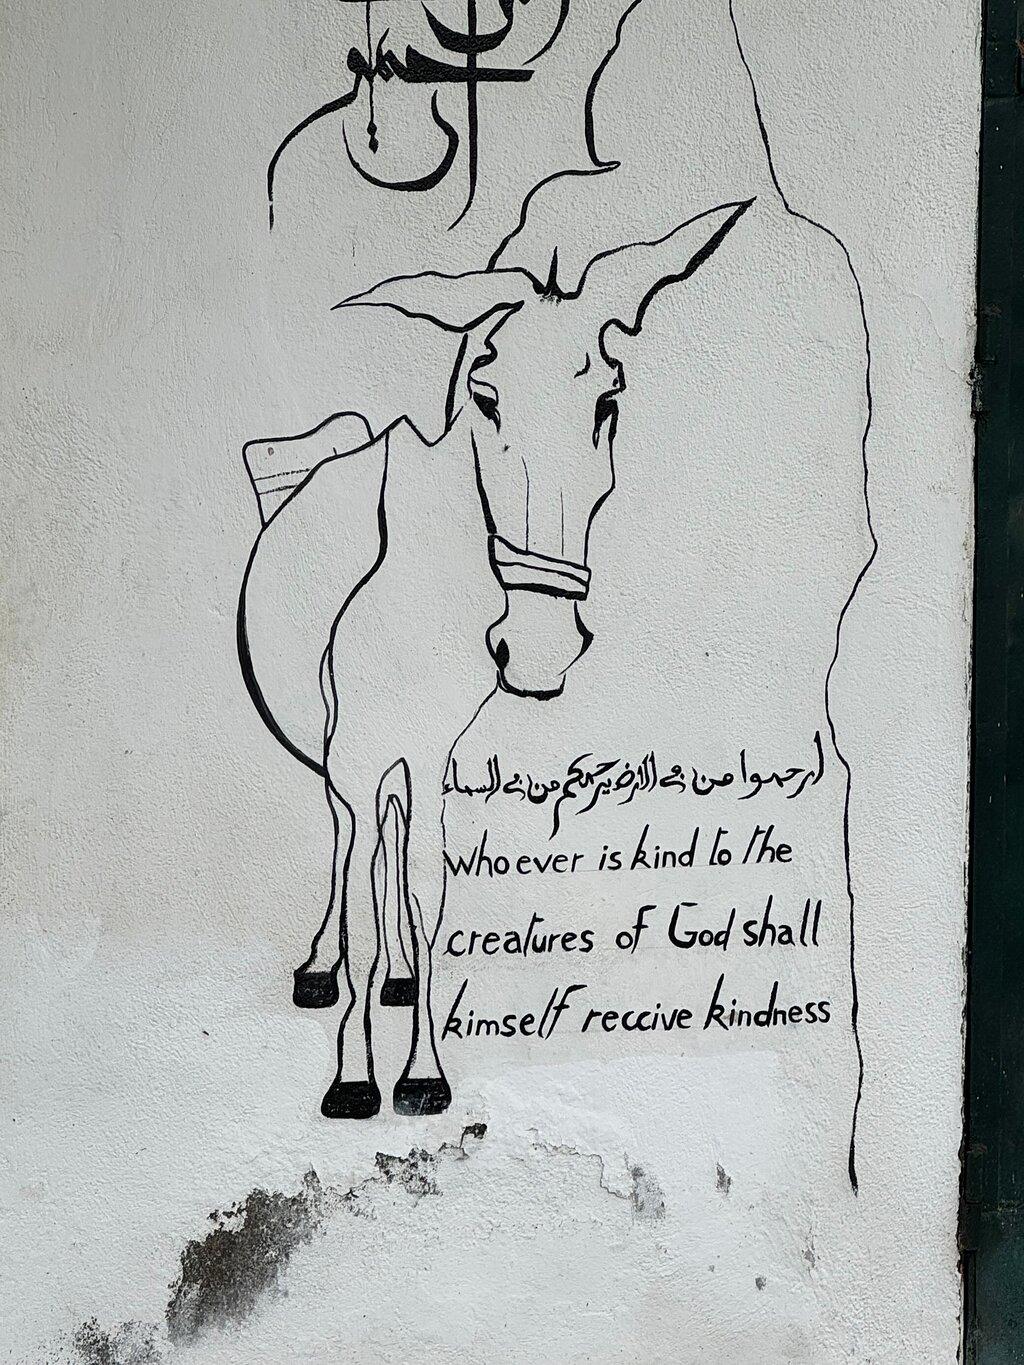 ارحموا من في الارض يرحمكم من في السماء
whoever is kind to the
creatures of God shall
kimself reccive kindness